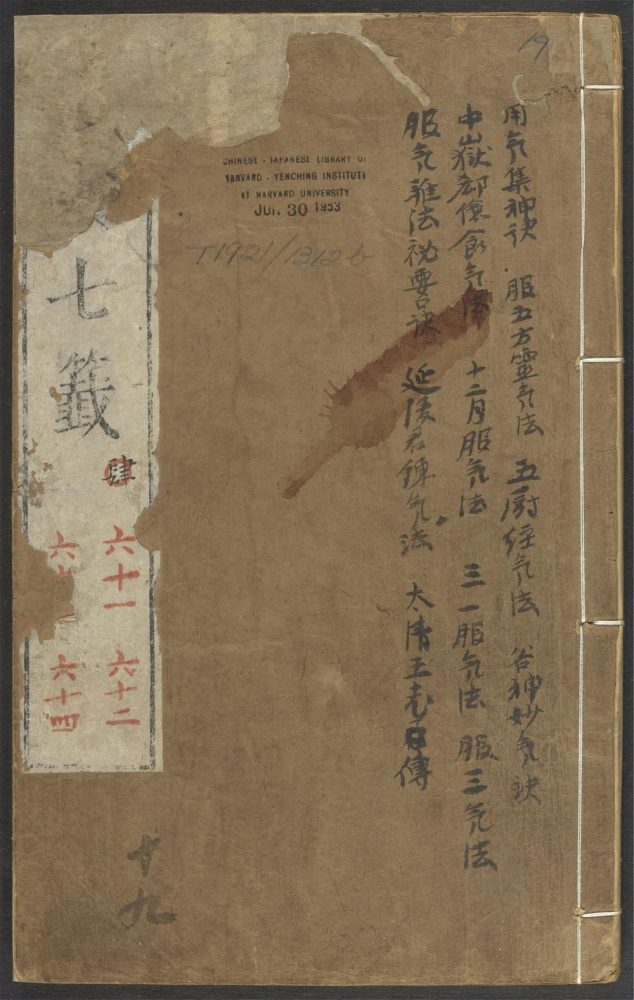 19
用气集神诀 服五方靈气法 五廚经气法 谷神妙气訣
中嶽郄儉食气法 十二月服气法 三一服气法 服三气法
服气雜法祕要口訣 延陵君錬气法 太清王老口傳
CHINESE - JAPANESE LIBRARY OF
HARVARD - YENCHING INSTITUTE
AT HARVARD UNIVERSITY
JUL 30 1953
七籤
肆
六十一 六十二
六 六十四
十九